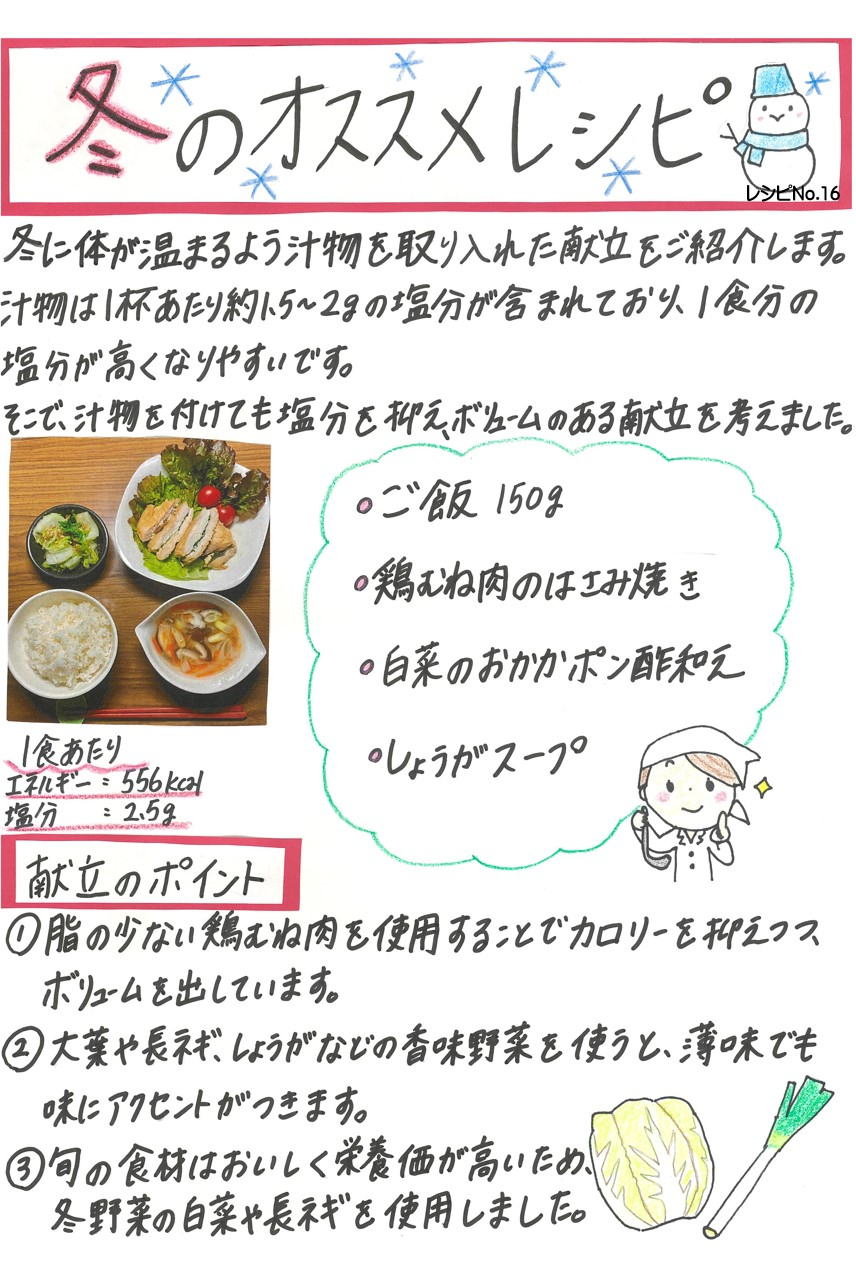 冬のオススメレシピ
レシピNo.16
冬に体が温まるよう汁物を取り入れた献立をご紹介します。
汁物は1杯あたり約1.5~2gの塩分が含まれており、1食分の
塩分が高くなりやすいです。
そこで、汁物を付けても塩分を抑え、ボリュームのある献立を考えました。
ご飯 150g
鶏むね肉のはさみ焼き
白菜のおかかポン酢和え
しょうがスープ
1食あたり
エネルギー:556kcal
塩分 :2.5g
献立のポイント
①脂の少ない鶏むね肉を使用することでカロリーを抑えつつ、
ボリュームを出しています。
②大葉や長ネギ、しょうがなどの香味野菜を使うと、薄味でも
味にアクセントがつきます。
③旬の食材はおいしく栄養価が高いため、
冬野菜の白菜や長ネギを使用しました。